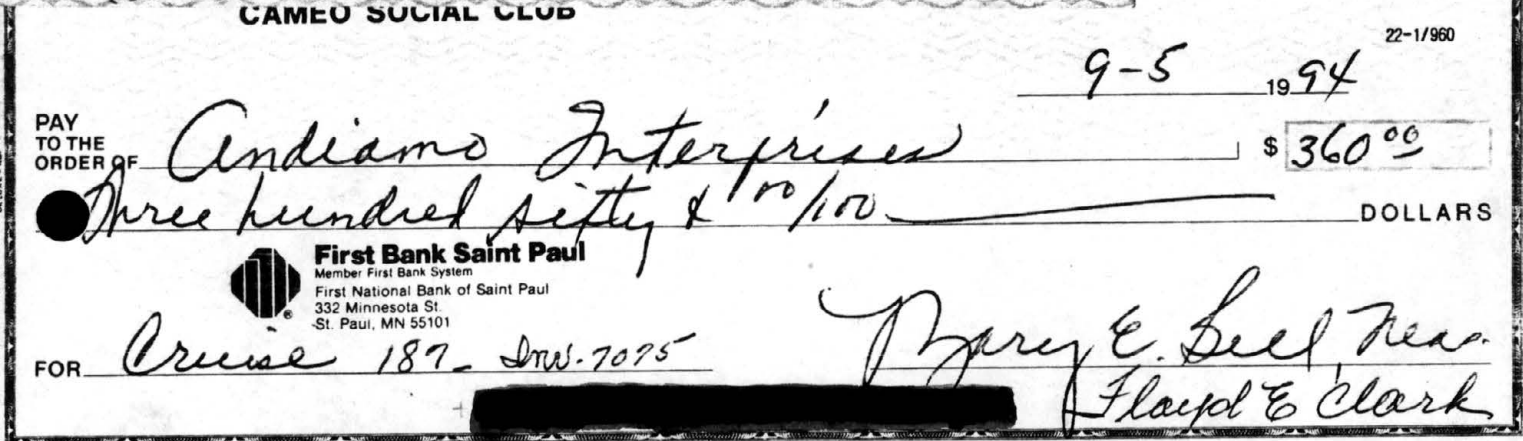 CAMEO SOCIAL CLUB
22-1/960
9-5 19 94
PAY TO THE ORDER OF Andiamo Enterprises $ 360 00
Three hundred sixty & 00/100 DOLLARS
First Bank Saint Paul
Member First Bank System
First National Bank of Saint Paul
332 Minnesota St.
St. Paul, MN 55101
FOR Cruise 187- Inv.-7075
Mary E. Bell, Treas.
Floyd E Clark